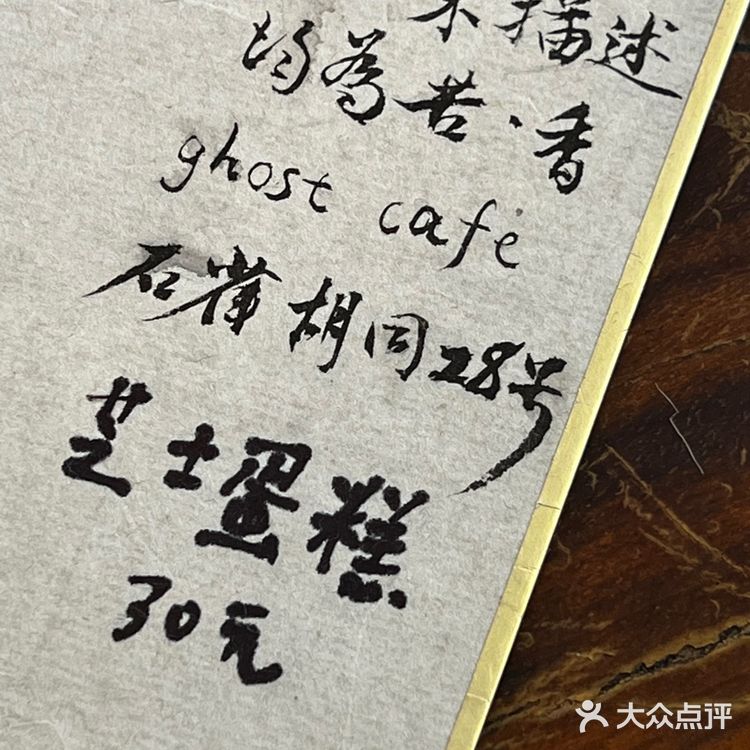 描述
均為苦、香
ghost cafe
石雀胡同28号
芝士蛋糕
30元
大众点评